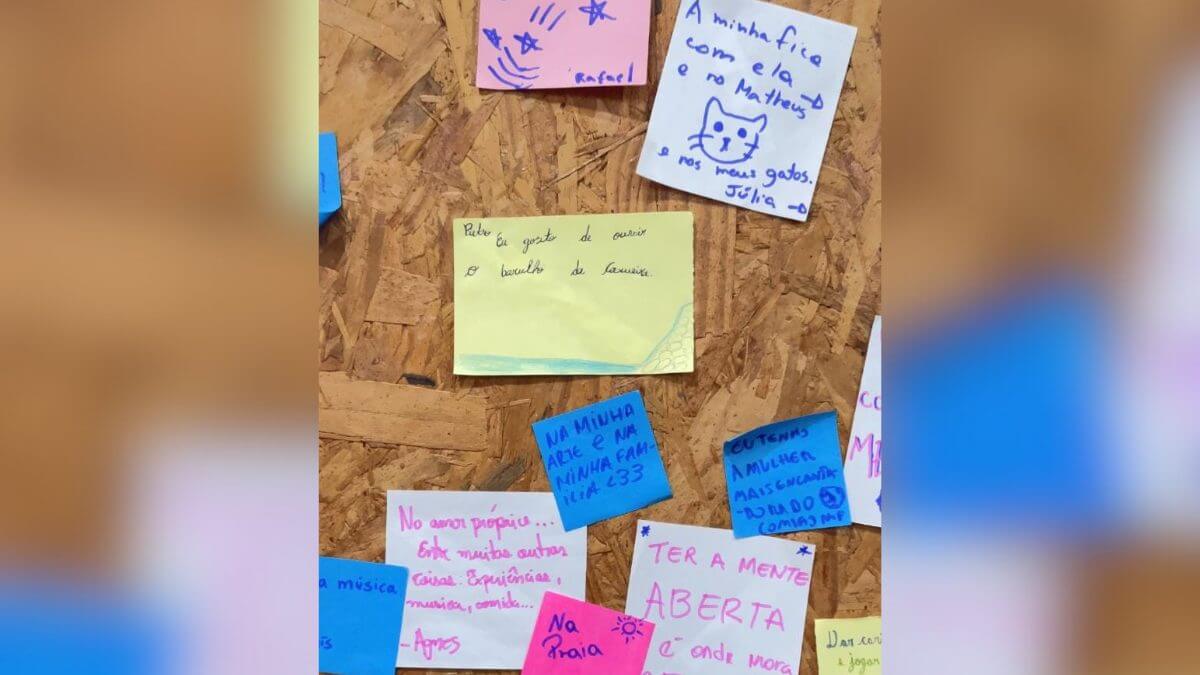 Rafael
A minha fica
com ela
e no Matheus
e nos meus gatos.
Júlia
Pietro Eu gosto de ouvir
o barulho da
NA MINHA
ARTE E NA
MINHA FAM-
ILIA <33
EU TENHO
A MULHER
MAIS ENCANTA-
DO
No amor próprio...
Entre muitas outras
coisas. Experiências,
musica, comida...
- Agnes
a música
Na
Praia
TER A MENTE
ABERTA
é onde mora
Dar
e jogar